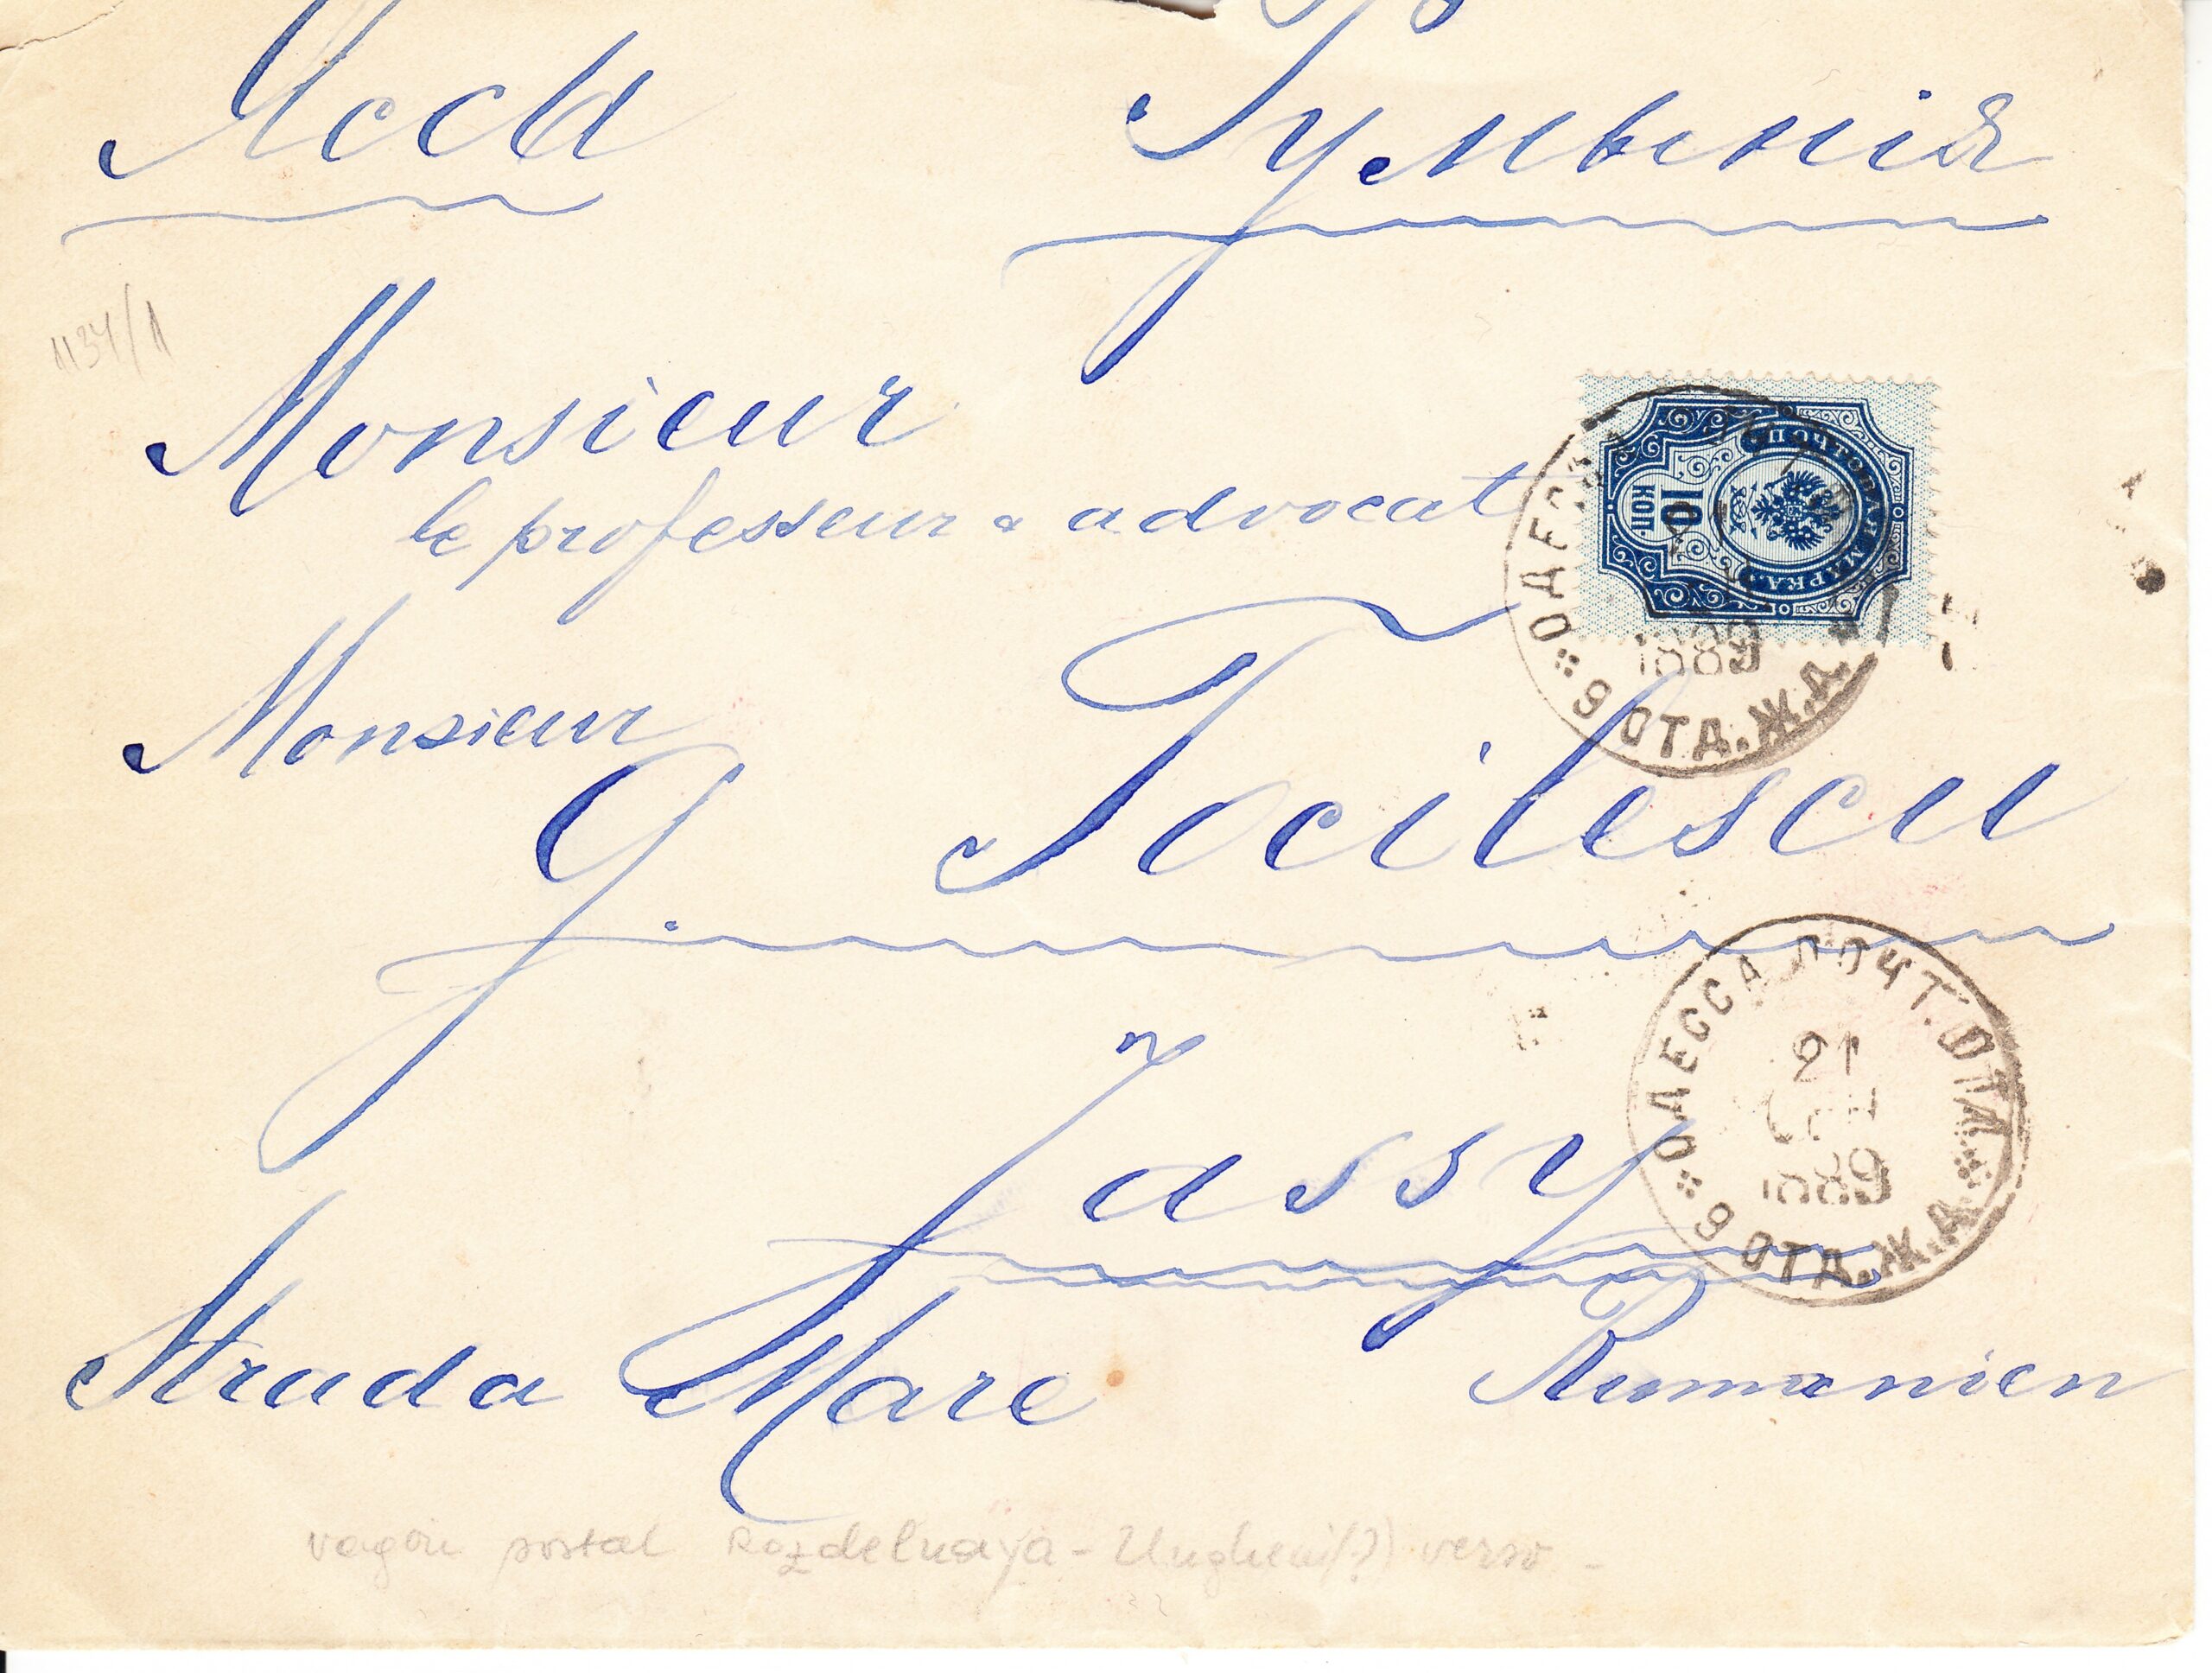 Яссы Румынія
1134/1
Monsieur
le professeur & advocat
ПОЧТОВАЯ МАРКА
10
КОП.
ОДЕССА
1889
9 ОТД. Ж.Д.
Monsieur
G. Tocilescu
ОДЕССА ПОЧТ. ОТД.
21
ОКТ
1889
9 ОТД. Ж.Д.
Jassy
Strada Mare Rumanien
vagon postal Rozdelnaya - Ungheni(?) verso -